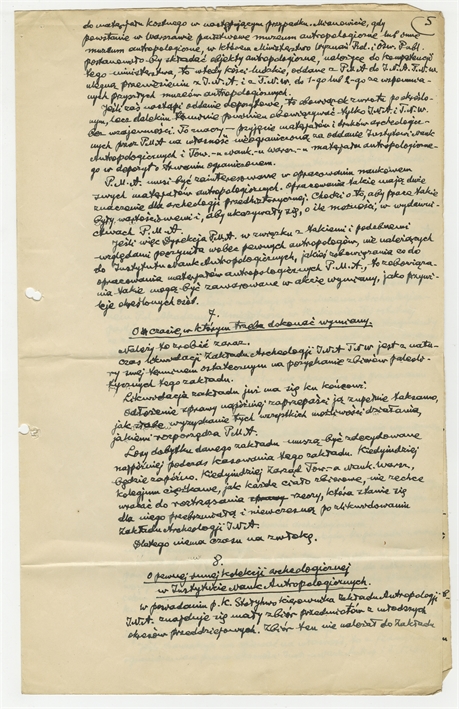 5
do materjału kostnego w następującym przypadku. Mianowicie, gdy
powstanie w Warszawie państwowe muzeum antropologiczne lub inne
muzeum antropologiczne, w którem Ministerstwo Wyznań Rel. i Ośw. Publ.
postanowiło by składać objekty antropologiczne, należące do kompetencji
tego ministerstwa, to wtedy kości ludzkie, oddane z P.M.A do I.N.A. T.N.W.
ulegną przewiezieniu z I.N.A. i z do 1-go lub 2-go ze wspomnia-
nych przyszłych muzeów antropologicznych.
Jeśli zaś nastąpi oddanie depozytowe, to obowiązek zwrotu po określo-
nym, lecz dalekim terminie powinien obowiązywać tylko I.N.A. i T.N.W.
bez wzajemności. To znaczy — przyjęcie materjałów i druków archeologicz-
nych przez P.M.A na własność nieograniczoną za oddanie Instytutowi Nauk
Antropologicznych i Tow.-u Nauk.-u Warsz.-u materjału antropologiczne-
go w depozyt o trwaniu ograniczonem.
P.M.A. musi być zainteresowane w opracowaniu naukowem
swych materjałów antropologicznych. Opracowania takie mają duże
znaczenie dla archeologji przedhistorycznej. Chodzi o to, aby prace takie
były wartościowemi i, aby ukazywały się, o ile możności, w wydawni-
ctwach P.M.A.
Jeśli więc Dyrekcja P.M.A. w związku z takiemi i podobnemi
względami poczyniła wobec pewnych antropologów, nie należących
do Instytutu Nauk Antropologicznych, jakieś zobowiązania co do
opracowania materjałów antropologicznych P.M.A., to zobowiąza-
nia takie mogą być zawarowane w akcie wymiany, jako przywi-
leje określonych osób.
7.
O czasie, w którym trzeba dokonać wymiany.
Należy to zrobić zaraz.
Czas likwidacji Zakładu Archeologji I.N.A. T.N.W. jest z natu-
ry swej terminem ostatecznym na pozyskanie zbiorów paleoli-
tycznych tego zakładu.
Likwidacja zakładu już ma się ku końcowi.
Odłożenie sprawy najpóźniej zaprzepaści ją zupełnie tak samo,
jak wyzyskanie tych wszystkich możliwości działania,
jakiemi rozporządza P.M.A.
Losy dobytku danego zakładu muszą być zdecydowane
najpóźniej podczas kasowania tego zakładu. Kiedyindziej
będzie zapóźno. Kiedyindziej Zarząd Tow.-a Nauk. Warsz.,
kolegjum ciężkawe, jak każde ciało zbiorowe, nie zechce
wracać do roztrząsania rzeczy, która stanie się
dla niego przebrzmiałą i niewczesną po zlikwidowaniu
Zakładu Archeologji I.N.A.
Dlatego niema czasu na zwłokę.
8.
O pewnej innej kolekcji archeologicznej
w Instytucie Nauk Antropologicznych.
W posiadaniu p. K. Stołyhwo kierownika Zakładu Antropologji
I.N.A. znajduje się mały zbiór przedmiotów z młodszych
okresów przeddziejowych. Zbiór ten nie należał do Zakładu